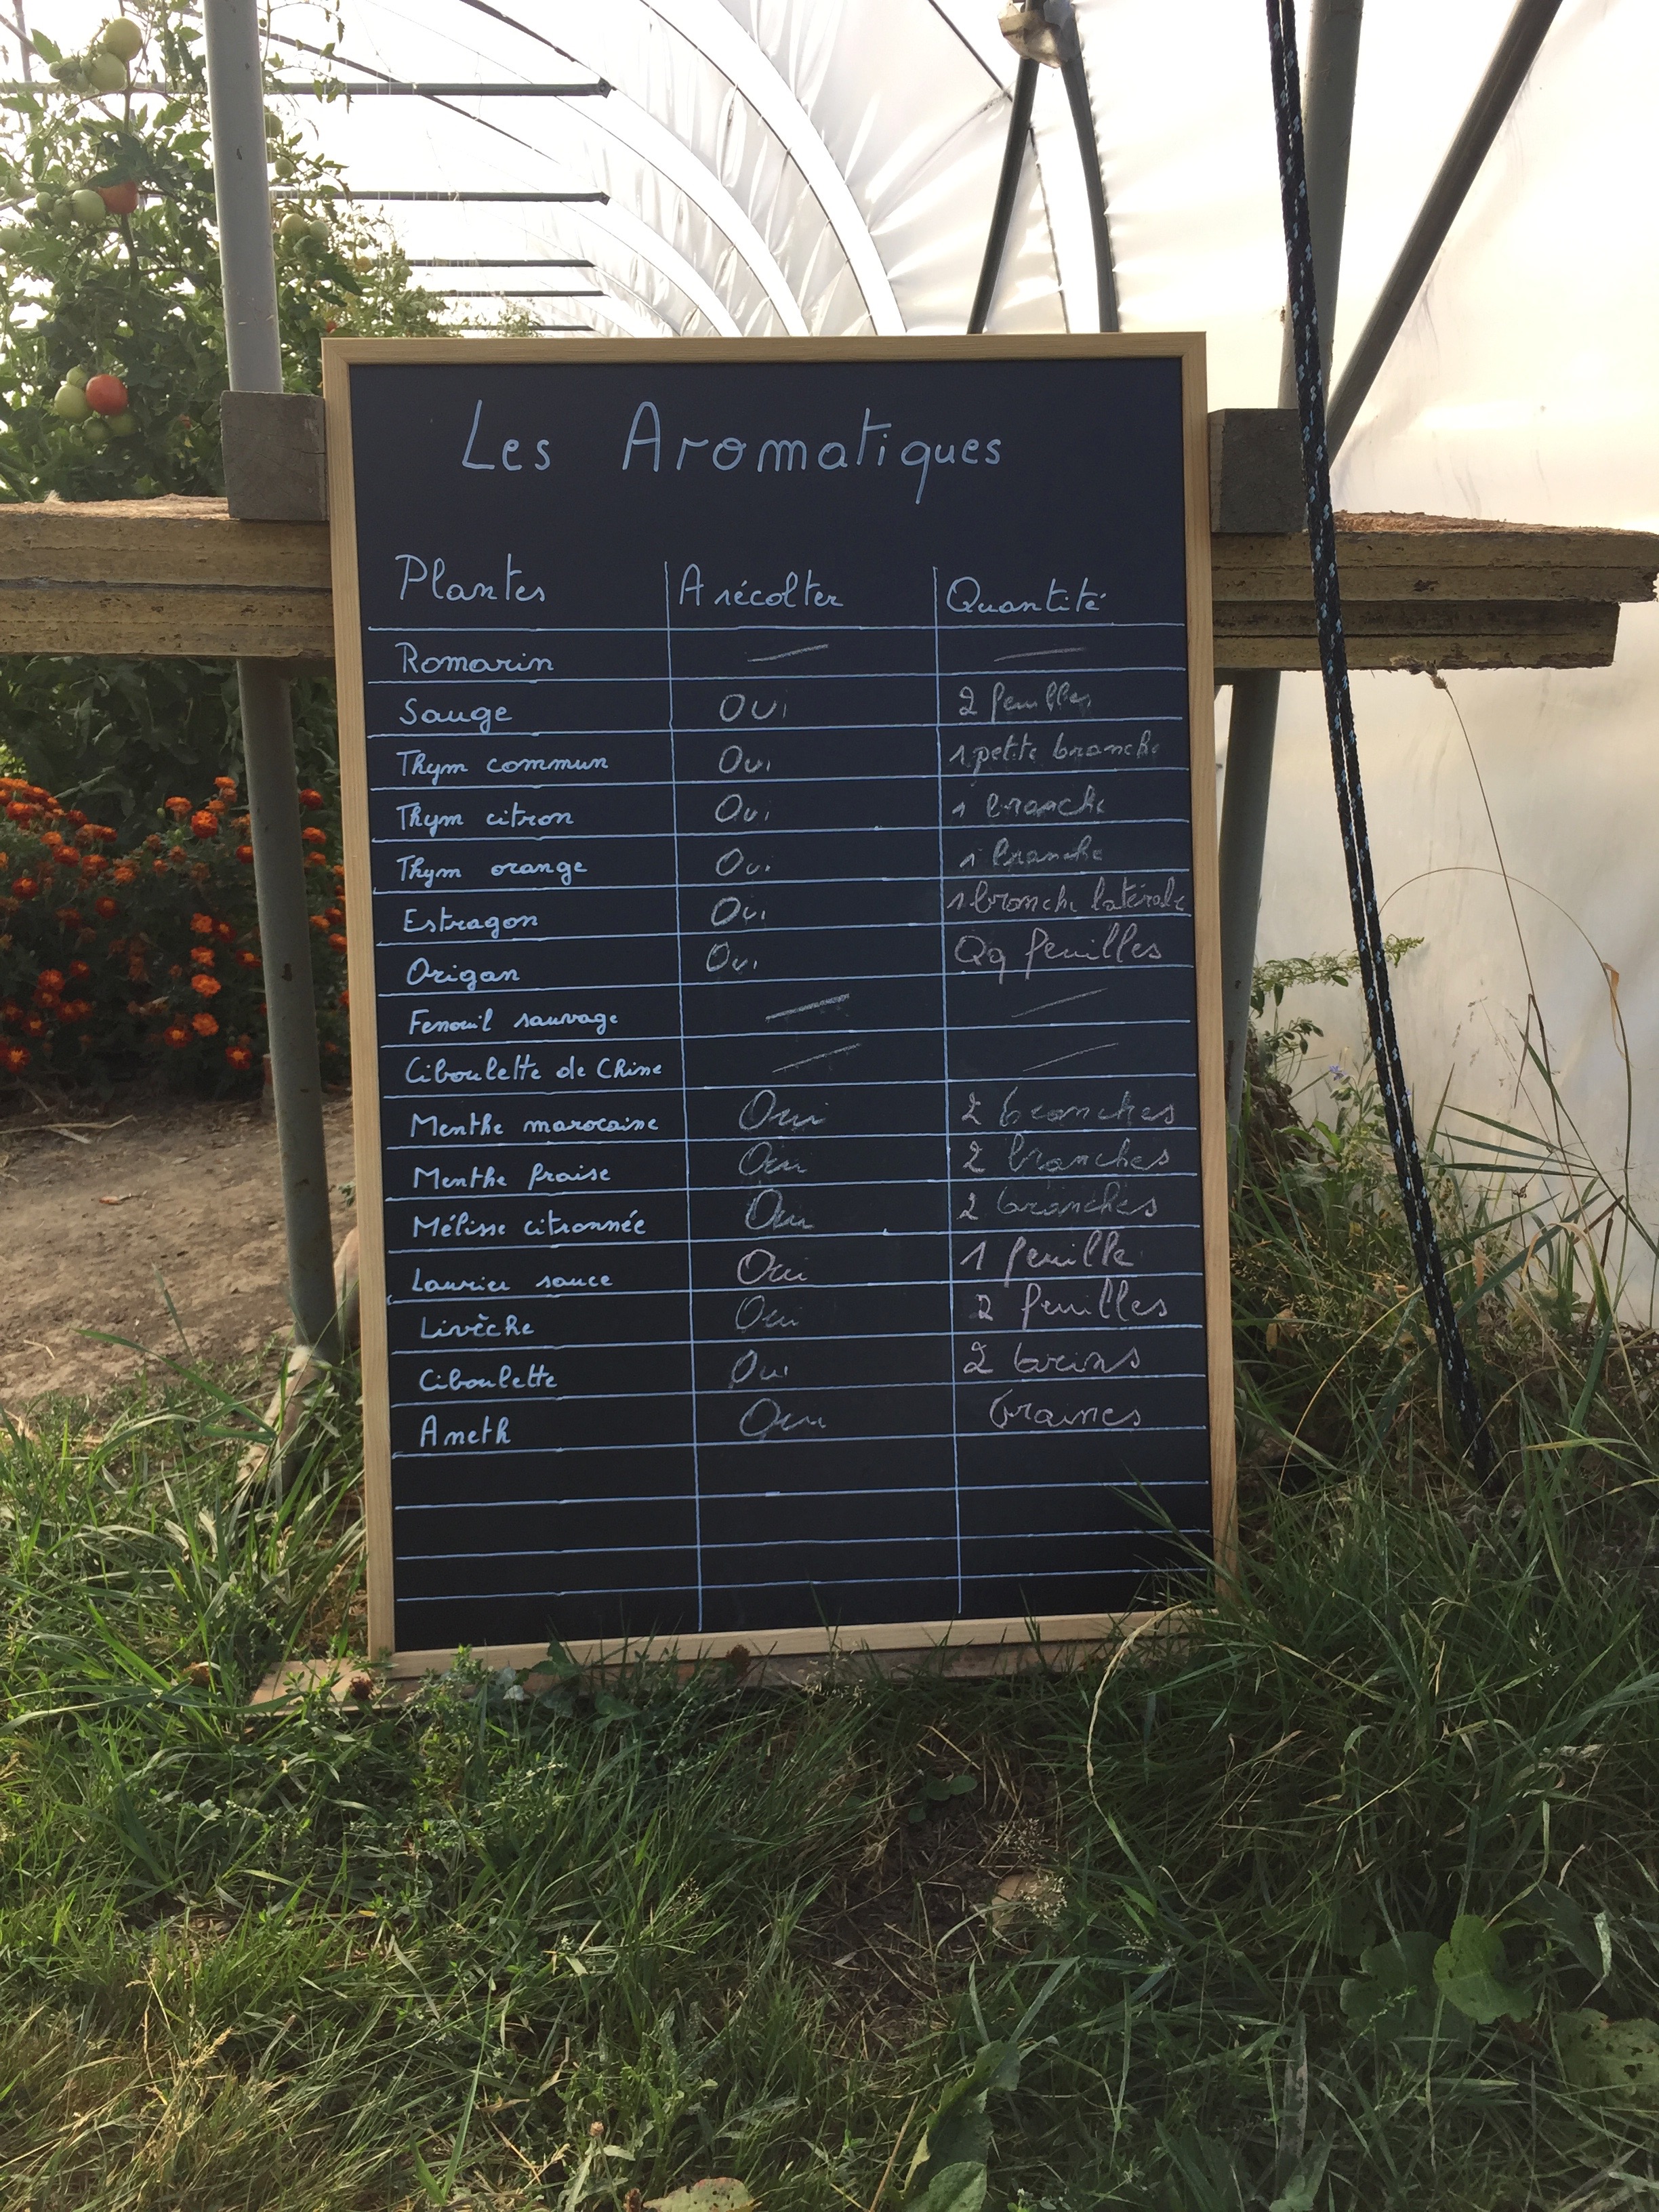 Les Aromatiques
Plantes A récolter Quantité
Romarin
Sauge OUi 2 feuilles
Thym commun Oui 1 petite branche
Thym citron Oui 1 branche
Thym orange Oui 1 branche
Estragon Oui 1 branche latérale
Origan Oui Qq feuilles
Fenouil sauvage
Ciboulette de Chine
Menthe marocaine Oui 2 branches
Menthe fraise Oui 2 branches
Mélisse citronnée Oui 2 branches
Laurier sauce Oui 1 feuille
Livèche Oui 2 feuilles
Ciboulette Oui 2 brins
Aneth Oui Graines